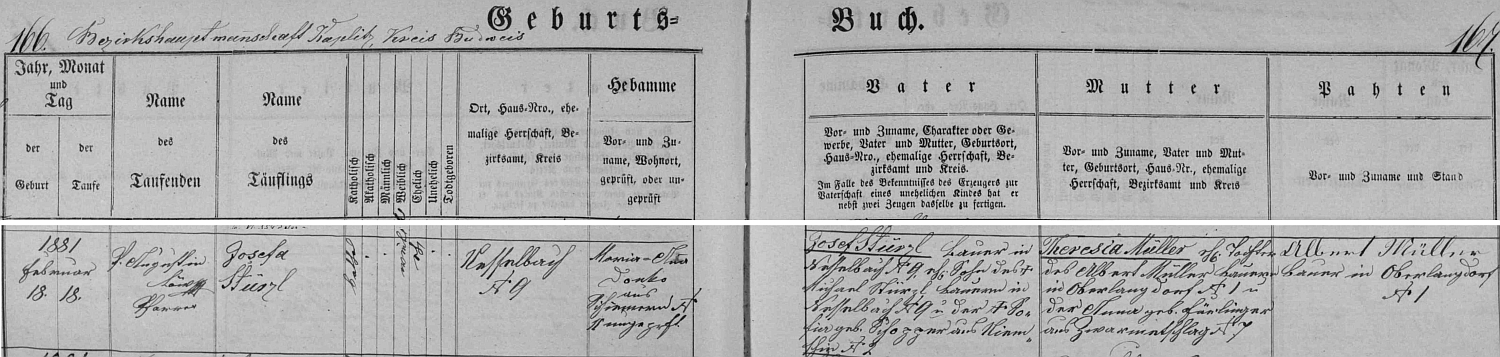 Geburts-
Buch.
166. Bezirkshauptmannschaft Kaplitz, Kreis Budweis
167.
Jahr, Monat
und
Tag
der
Geburt
der
Taufe
Name
des
Taufenden
Name
des
Täuflings
Katholisch
Akatholisch
Männlich
Weiblich
Ehelich
Unehelich
Todtgeboren
Ort, Haus-Nro., ehe-
malige Herrschaft, Be-
zirksamt, Kreis
Hebamme
Vor- und Zu-
name, Wohnort,
geprüft, oder un-
geprüft
Vater
Vor- und Zuname, Charakter oder Ge-
werbe, Vater und Mutter, Geburtsort,
Haus-Nro., ehemalige Herrschaft, Be-
zirksamt und Kreis.
Im Falle des Bekenntnisses des Erzeugers zur
Vaterschaft eines unehelichen Kindes hat er
nebst zwei Zeugen dasselbe zu fertigen.
Mutter
Vor- und Zuname, Vater und Mut-
ter, Geburtsort, Haus-Nr., ehemalige
Herrschaft, Bezirksamt und Kreis
Pathen
Vor- und Zuname und Stand
1881
Februar
18. 18.
P. Augustin
Pfarrer
Josefa
Stürzl
Nesselbach
№ 9
Maria
aus
ungeprft
Josef Stürzl Bauer in
Nesselbach № 9 eh. Sohn des †
Michael Stürzl Bauern in
Nesselbach № 9 u der † So-
fia geb. Schopper aus Niem-
schin № 2
Theresia Müller eh. Tochter
des Albert Müller Bauern
in Oberlangdorf № 1 u
der Anna geb.
aus Zwarmetschlag № 7
Albert Müller
Bauer in Oberlangdorf
№ 1